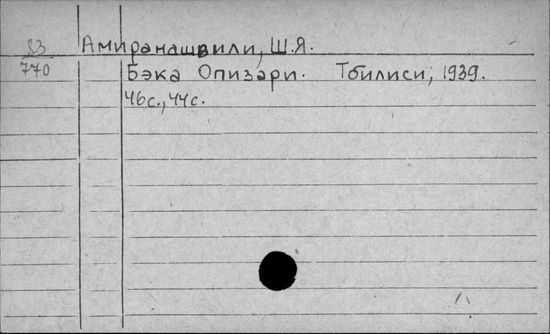 83 Амиранашвили, Ш.Я.
770 Бэка Опизари. Тбилиси, 1939.
46с., 44с.